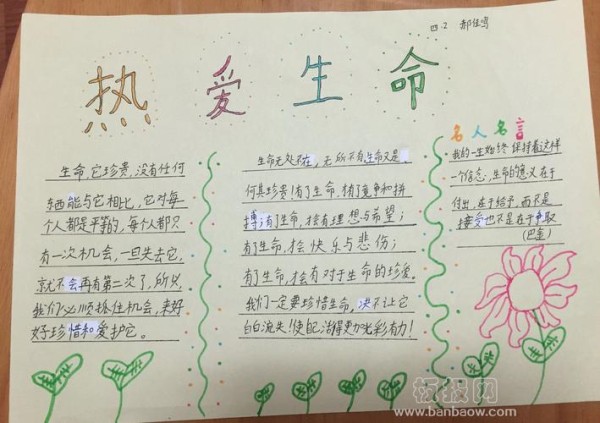 四.2 郝佳鸣
热爱生命
生命,它珍贵,没有任何
东西能与它相比,它对每
个人都是平等的,每个人都只
有一次机会,一旦失去它,
就不会再有第二次了,所以
我们必须抓住机会,来好
好珍惜和爱护它。
生命无处不在,无所不有生命又是
何其珍贵!有了生命,才有竞争和拼
搏;有了生命,才会有理想与希望;
有了生命,才会快乐与悲伤;
有了生命,才会有对于生命的珍爱。
我们一定要珍惜生命,决不让它
白白流失!使它活得更加光彩有力!
名人名言
我的一生始终保持着这样
一个信念,生命的意义在于
付出,在于给予,而不是
接受也不是在于争取
(巴金)
板报网
www.banbaow.com